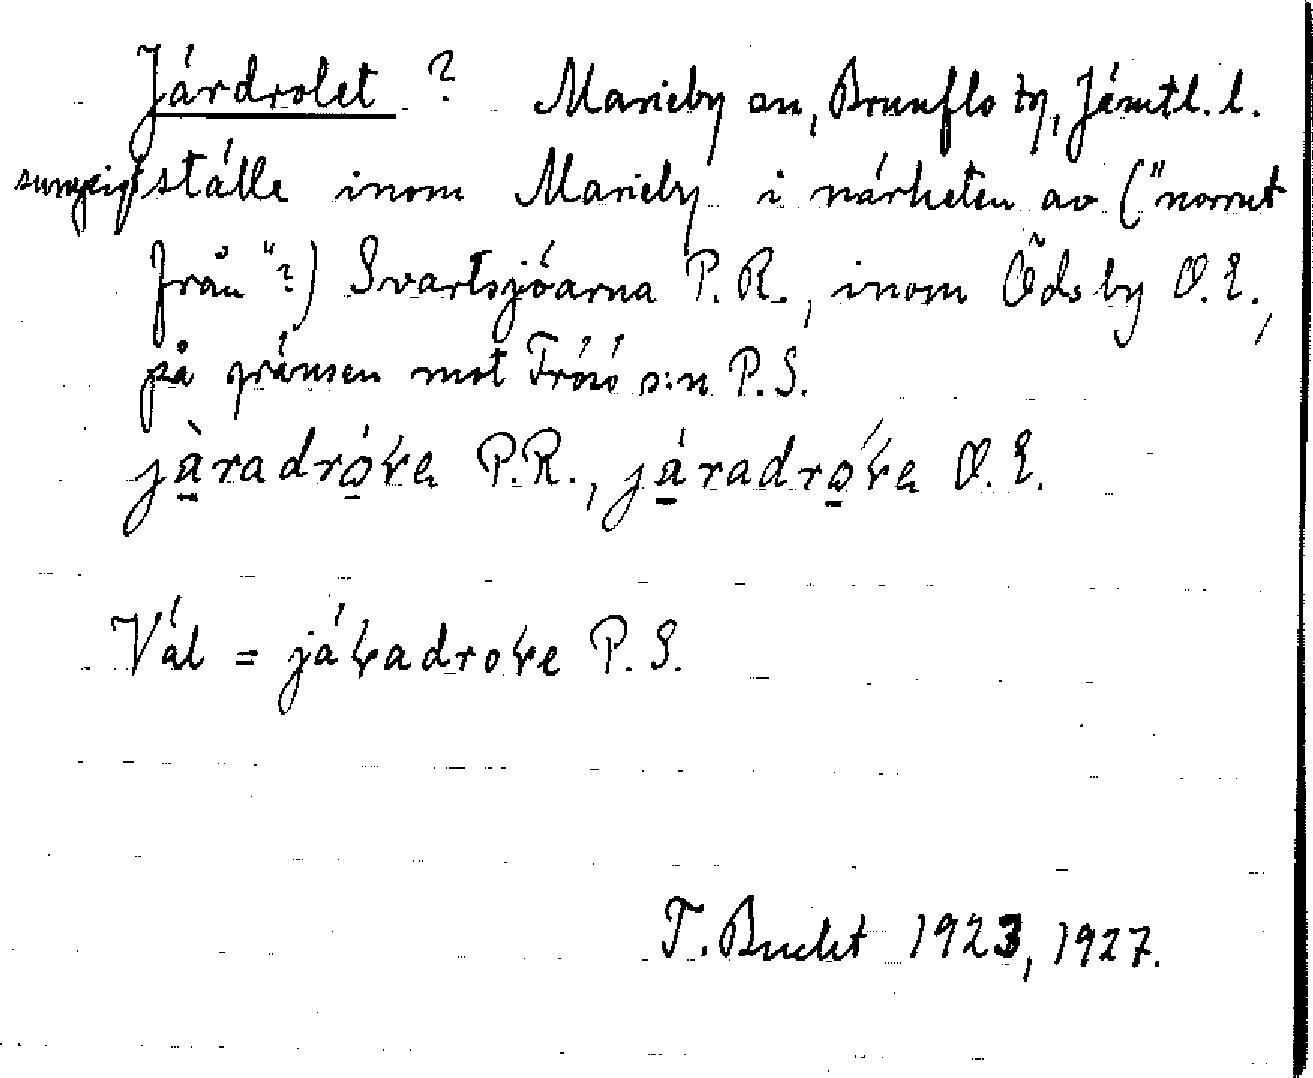 Järdrolet ? Marieby sn, Brunflo tg, Jämtl. l.
sumpigt ställe inom Marieby i närheten av ("norrut
från"?) Svartsjöarna P.R., inom Ödsby O.E.,
på gränsen mot Frösö s:n P.S.
jàradróɽe P.R., járadróɽe O.E.
Väl = jáɽadroɽe P.S.
T. Bucht 1923, 1927.